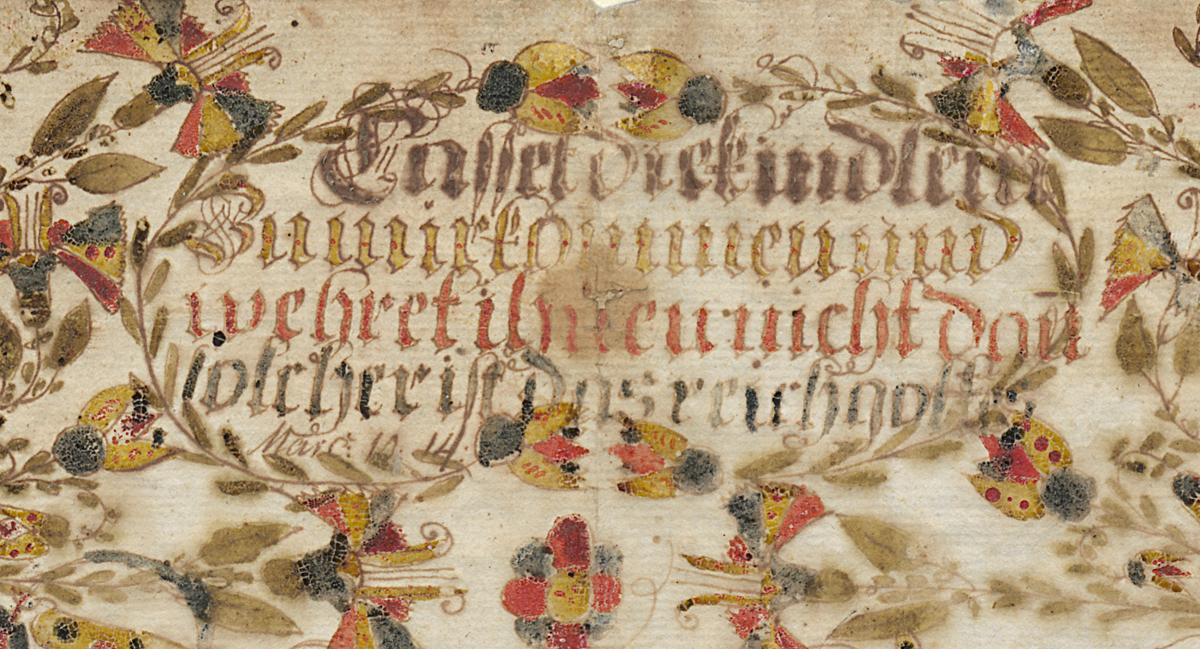 Lasset die kindlein
Zu mir kommen und
wehret ihnen nicht dan
solcher ist das reich gottes
Marc: 10. 14